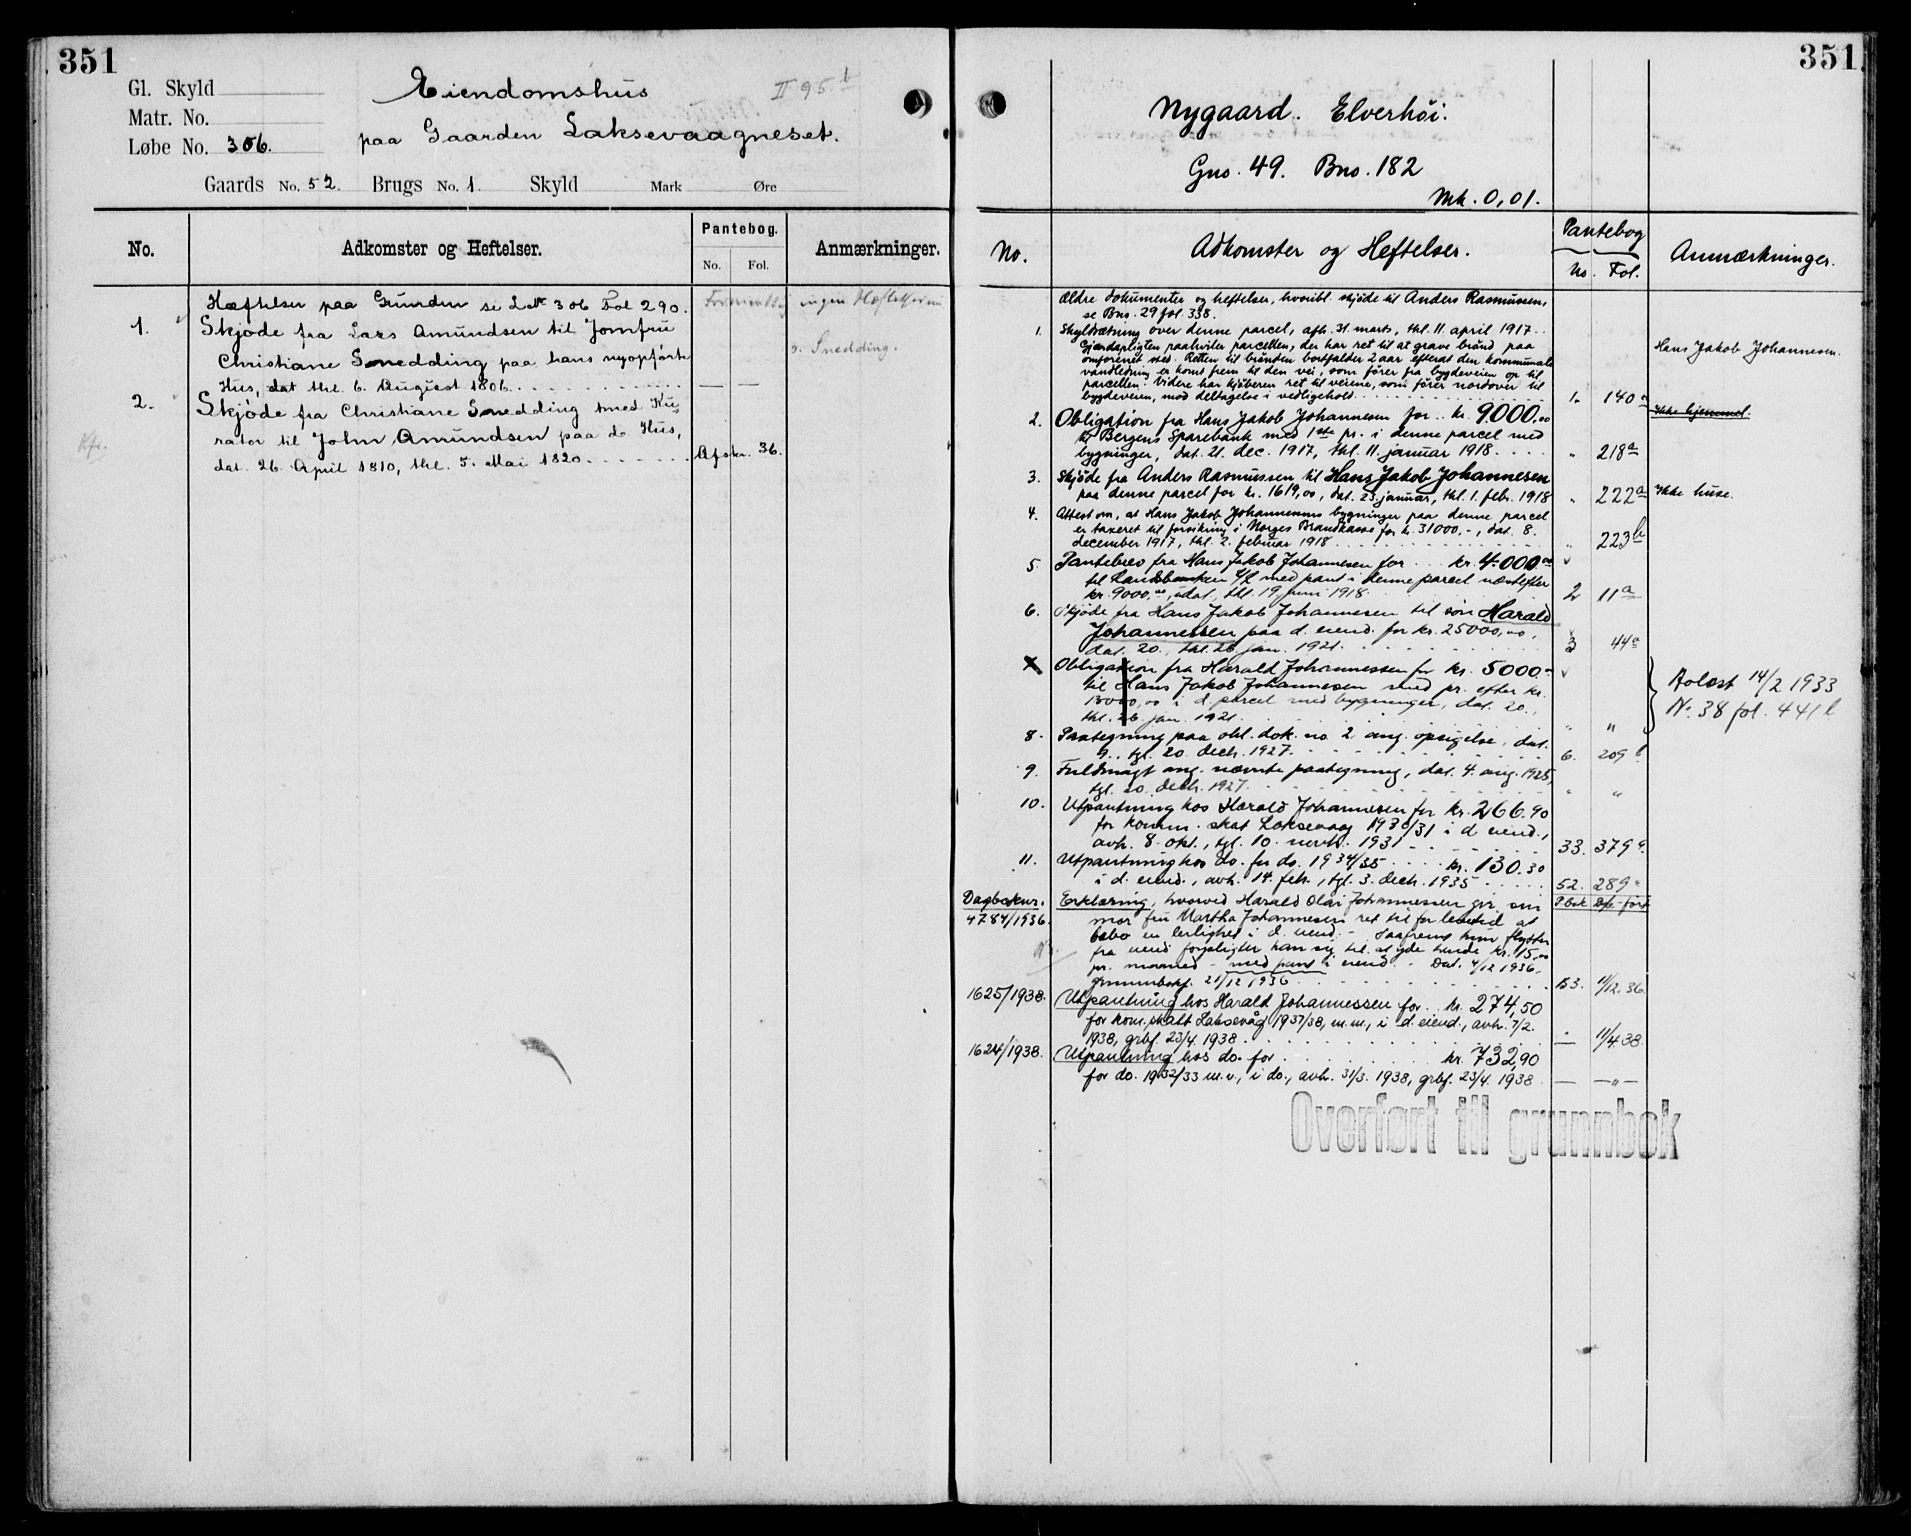 351
Gl. Skyld
Matr. No.
Løbe No. 306.
Eiendomshus
II 95 b
paa Gaarden Laksevaagneset.
Gaards No. 52. Brugs No. 1. Skyld Mark Øre
No. Adkomster og Heftelser. Pantebog. No. Fol. Anmærkninger.
Hæftelser paa Grunden se L.№ 306 Fol 290. ingen
1. Skjøde fra Lars Amundsen til Jomfru
Christiane Snedding paa hans nyopførte s. Snedding.
Hus, dat thl. 6. August 1806. — —
2. Skjøde fra Christiane Snedding med Ku-
rator til John Amundsen paa do Hus,
dat. 26. April 1810, thl. 5. Mai 1820. Afskr. 36.
351.
Nygaard. Elverhøi.
Gno. 49. Bno. 182
Mk. 0,01.
No. Adkomster og Heftelser. Pantebog No. Fol. Anmærkninger.
Ældre dokumenter og heftelser, hvoribl. skjøde til Anders Rasmussen,
se Bno. 29 fol. 338.
1. Skyldsætning over denne parcel, afh. 31. marts, thl. 11. april 1917.
Gjerdepligten paahviler parcellen, der har ret til at grave brønd paa Hans Jakob Johannesen.
omforenet sted. Retten til brønden bortfalder 2 aar efterat den kommunale
vandledning er komt frem til den vei, som fører fra bygdeveien op til
parcellen. Videre har kjøberen ret til veiene, som fører nordover til
bygdeveien, mod deltagelse i vedligehold. 1. 140 a
2. Obligation fra Hans Jakob Johannesen for kr. 9000,00 Ikke hjemmel.
til Bergens Sparebank med 1ste pr. i denne parcel med
bygninger, dat. 21. dec. 1917, thl. 11. januar 1918. " 218a
3. Skjøde fra Anders Rasmussen til Hans Jakob Johannesen
paa denne parcel for kr. 1619,00, dat. 23. januar, thl. 1. febr. 1918 " 222a Ikke huse.
4. Attest om, at Hans Jakob Johannesens bygninger paa denne parcel
er taxeret til forsikring i Norges Brandkasse for kr. 31000,-, dat. 8.
december 1917, thl. 2. februar 1918 " 223b
5. Pantebrev fra Hans Jakob Johannesen for kr. 4000,00
til Landsbanken A/S med pant i denne parcel næstefter
kr. 9000,00, udat, thl. 19 juni 1918. 2 11a
6. Skjøde fra Hans Jakob Johannesen til søn Harald
Johannessen paa d. eiend. for kr. 25000,00,
dat. 20., thl. 26. jan. 1921. 3 44a
Obligation fra Harald Johannessen for kr. 5000.-
til Hans Jakob Johannesen med pr. efter kr. Avlæst 14/2 1933
13000,00 i d. parcel med bygninger, dat. 20., № 38 fol. 441b
thl. 26. jan. 1921. " "
8. Paategning paa obl. dok. no 2 ang. opsigelse, dat.
9., tgl. 20. decb. 1927. 6. 209b
9. Fuldmagt ang. nævnte paategning, dat. 4. aug. 1925,
tgl. 20. decb. 1927. " "
10. Utpantning hos Harald Johannesen for kr. 266.90
for komm. skat Laksevaag 1930/31 i d. eiend.,
avh. 8. okt., tgl. 10. novb. 1931 33. 379a.
11. Utpantning hos do. for do. 1934/35 kr. 130.30
i d. eiend., avh. 14. feb., tgl. 3. decb. 1935 52. 289a
Dagboknr. Erklæring, hvorved Harald Olai Johannessen gir sin P.bok Dgb. ført
4784/1936. mor fru Martha Johannesen ret til for levetid at
bebo en leilighet i d. eiend. - Saafremt hun flytter
fra eiend. forpligter han sig til at yde hende kr. 15,00
pr. maaned - med pant i eiend. - Dat. 4/12 1936,
grunnbokf. 21/12 1936 B3. 11/12.36.
1625/1938. Utpantning hos Harald Johannessen for kr. 274,50
for kom. skatt Laksevåg 1937/38, m.m., i d. eiend., avh. 7/2.
1938, grbf. 23/4. 1938. — 11/4 38.
1624/1938. Utpantning hos do. for kr. 732,90
for do. 1932/33 m.v., i do., avh. 31/3. 1938, grbf. 23/4. 1938 — —"—
Overført til grunnbok